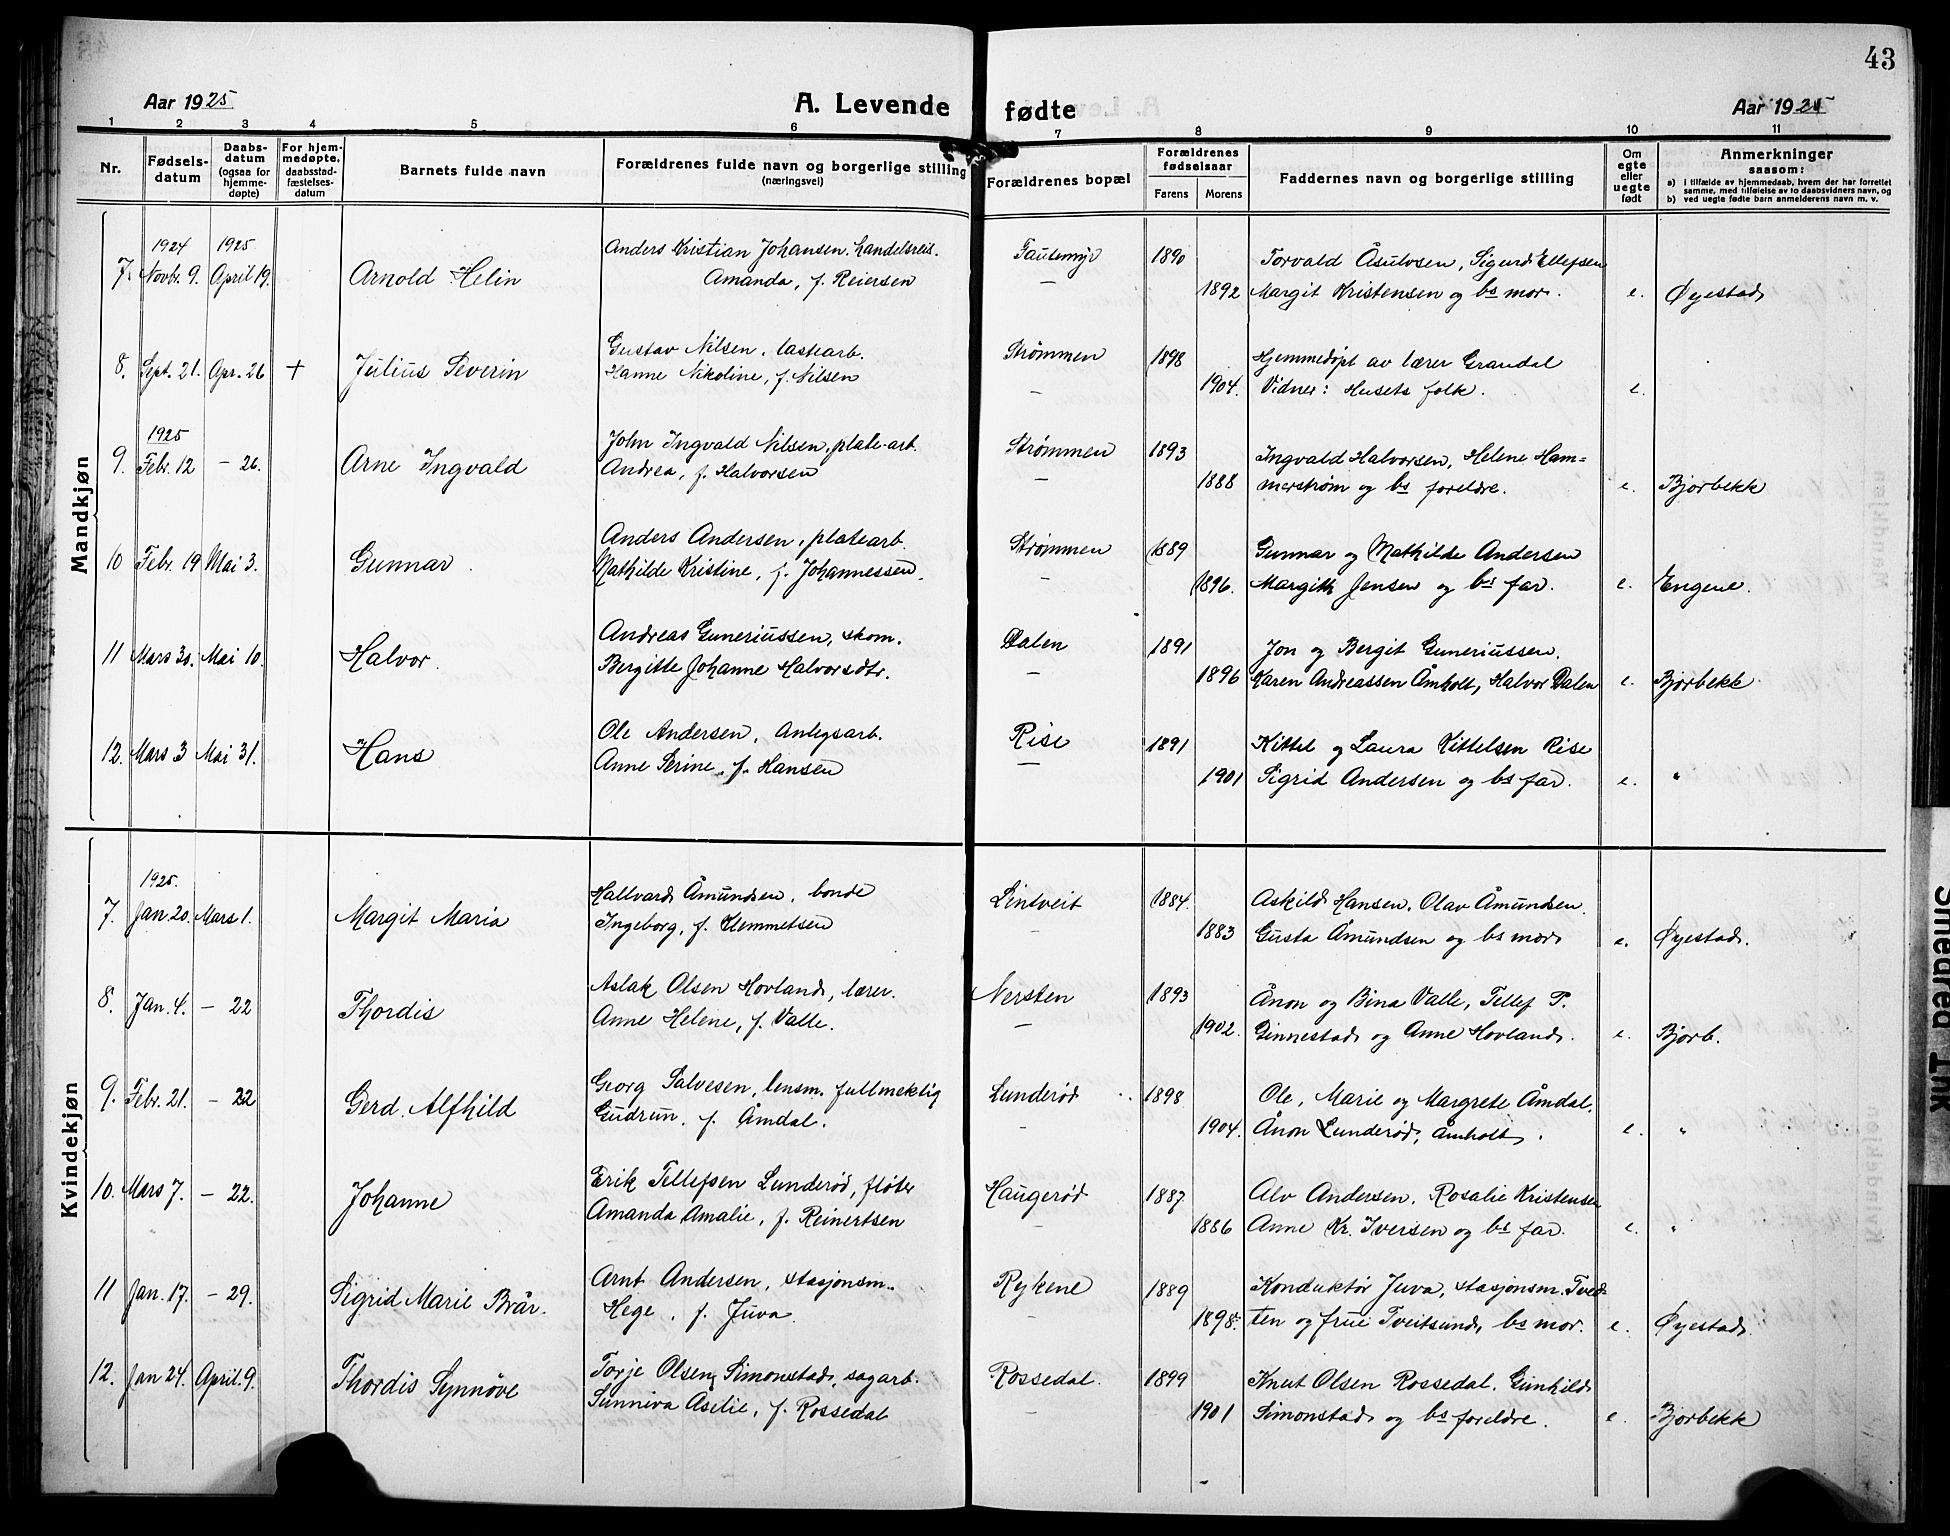 43
Aar 1925
A. Levende fødte
Aar 1925
1 2 3 4 5 6 7 8 9 10 11
Nr.
Fødsels-
datum
Daabs-
datum
(ogsaa for
hjemme-
døpte)
For hjem-
medøpte,
daabsstad-
fæstelses-
datum
Barnets fulde navn
Forældrenes fulde navn og borgerlige stilling
(næringsvei)
Forældrenes bopæl
Forældrenes
fødselsaar
Farens Morens
Faddernes navn og borgerlige stilling
Om
egte
eller
uegte
født
Anmerkninger
saasom:
a) i tilfælde av hjemmedaab, hvem der har forrettet
samme, med tilføielse av to daabsvidners navn, og
b) ved uegte fødte barn anmelderens navn m. v.
Mandkjøn
1924 1925 Anders Kristian Johansen, handelsreis. 1890 Torvald Åsulvsen, Sigurd Ellefsen
7. Novbr. 9. April 19. Arnold Helin Amanda, f. Reiersen — 1892 Margit Kristensen og bs mor. e. Øyestad
Gustav Nilsen, lastearb. Strømmen 1898 Hjemmedøpt av lærer Grandal
8. Sept. 21. Apr. 26 + Julius Severin Hanne Nikoline, f. Nilsen — 1904. Vidner: Husets folk. e.
1925 John Ingvald Nilsen, plate-arb. Strømmen 1893 Ingvald Halvorsen, Helene Ham=
9. Febr. 12 — 26. Arne Ingvald Andrea, f. Halvorsen — 1888 merstrøm og bs foreldre. e. Bjorbekk
Anders Andersen, platearb. Strømmen 1889 Gunnar og Mathilde Andersen
10 Febr. 19 Mai 3. Gunnar Mathilde Kristine, f. Johannessen. — 1896. Margith Jensen og bs far. e. Engene.
Andreas Guneriussen, skom. Dalen 1891 Jon og Bergit Guneriussen.
11 Mars 30. Mai 10. Halvor. Bergitte Johanne Halvorsdtr. — 1896 Karen Andreassen Åmholt, Halvor Dalen e. Bjorbekk
Ole Andersen, Anlegsarb. Rise 1891 Kittel og Laura Kittelsen Rise
12. Mars 3 Mai 31. Hans Anne Serine, f. Hansen — 1901 Sigrid Andersen og bs far. e. "
Kvindekjøn
1925. Hallvard Åmundsen, bonde Lindtveit 1884. Askild Hansen, Olav Åmundsen.
7. Jan. 20. Mars 1. Margit Maria Ingeborg, f. Klemmetsen — 1883 Gusta Åmundsen og bs mor e. Øyestad.
Aslak Olsen Hovland, lærer. Nersten 1893 Ånon og Bina Valle, Tellef T.
8. Jan. 4. — 22 Thordis Anne Helene, f. Valle. — 1902. Ginnestad og Anne Hovland. e. Bjorb.
Georg Salvesen, lensm. fullmektig Lunderød 1898 Ole, Marie og Margrete Åmdal.
9. Febr. 21. — 22 Gerd Alfhild Gudrun, f. Åmdal. — 1904. Ånon Lunderød, Åmholt. e. "
Erik Tellefsen Lunderød, fløter Haugerød 1887 Alv Andersen, Rosalie Kristensen
10. Mars 7. — 22. Johanne Amanda Amalie, f. Reinertsen — 1886 Anne Kr. Iversen og bs far. e. "
Arnt Andersen, stasjonsm. Rykene 1889 Konduktør Juva, stasjonsm. Tved
11 Jan. 17. — 29. Sigrid Marie Brår. Hege, f. Juva. — 1898. ten og frue Tveitsund, bs mor. e. Øyestad.
Torje Olsen Simonstad, sagarb. Rossedal. 1899 Knut Olsen Rossedal, Gunhild
12. Jan 24. April 9. Thordis Synnøve Sunniva Aselie, f. Rossedal — 1901 Simonstad og bs foreldre. e. Bjorbekk
Smeared Ink